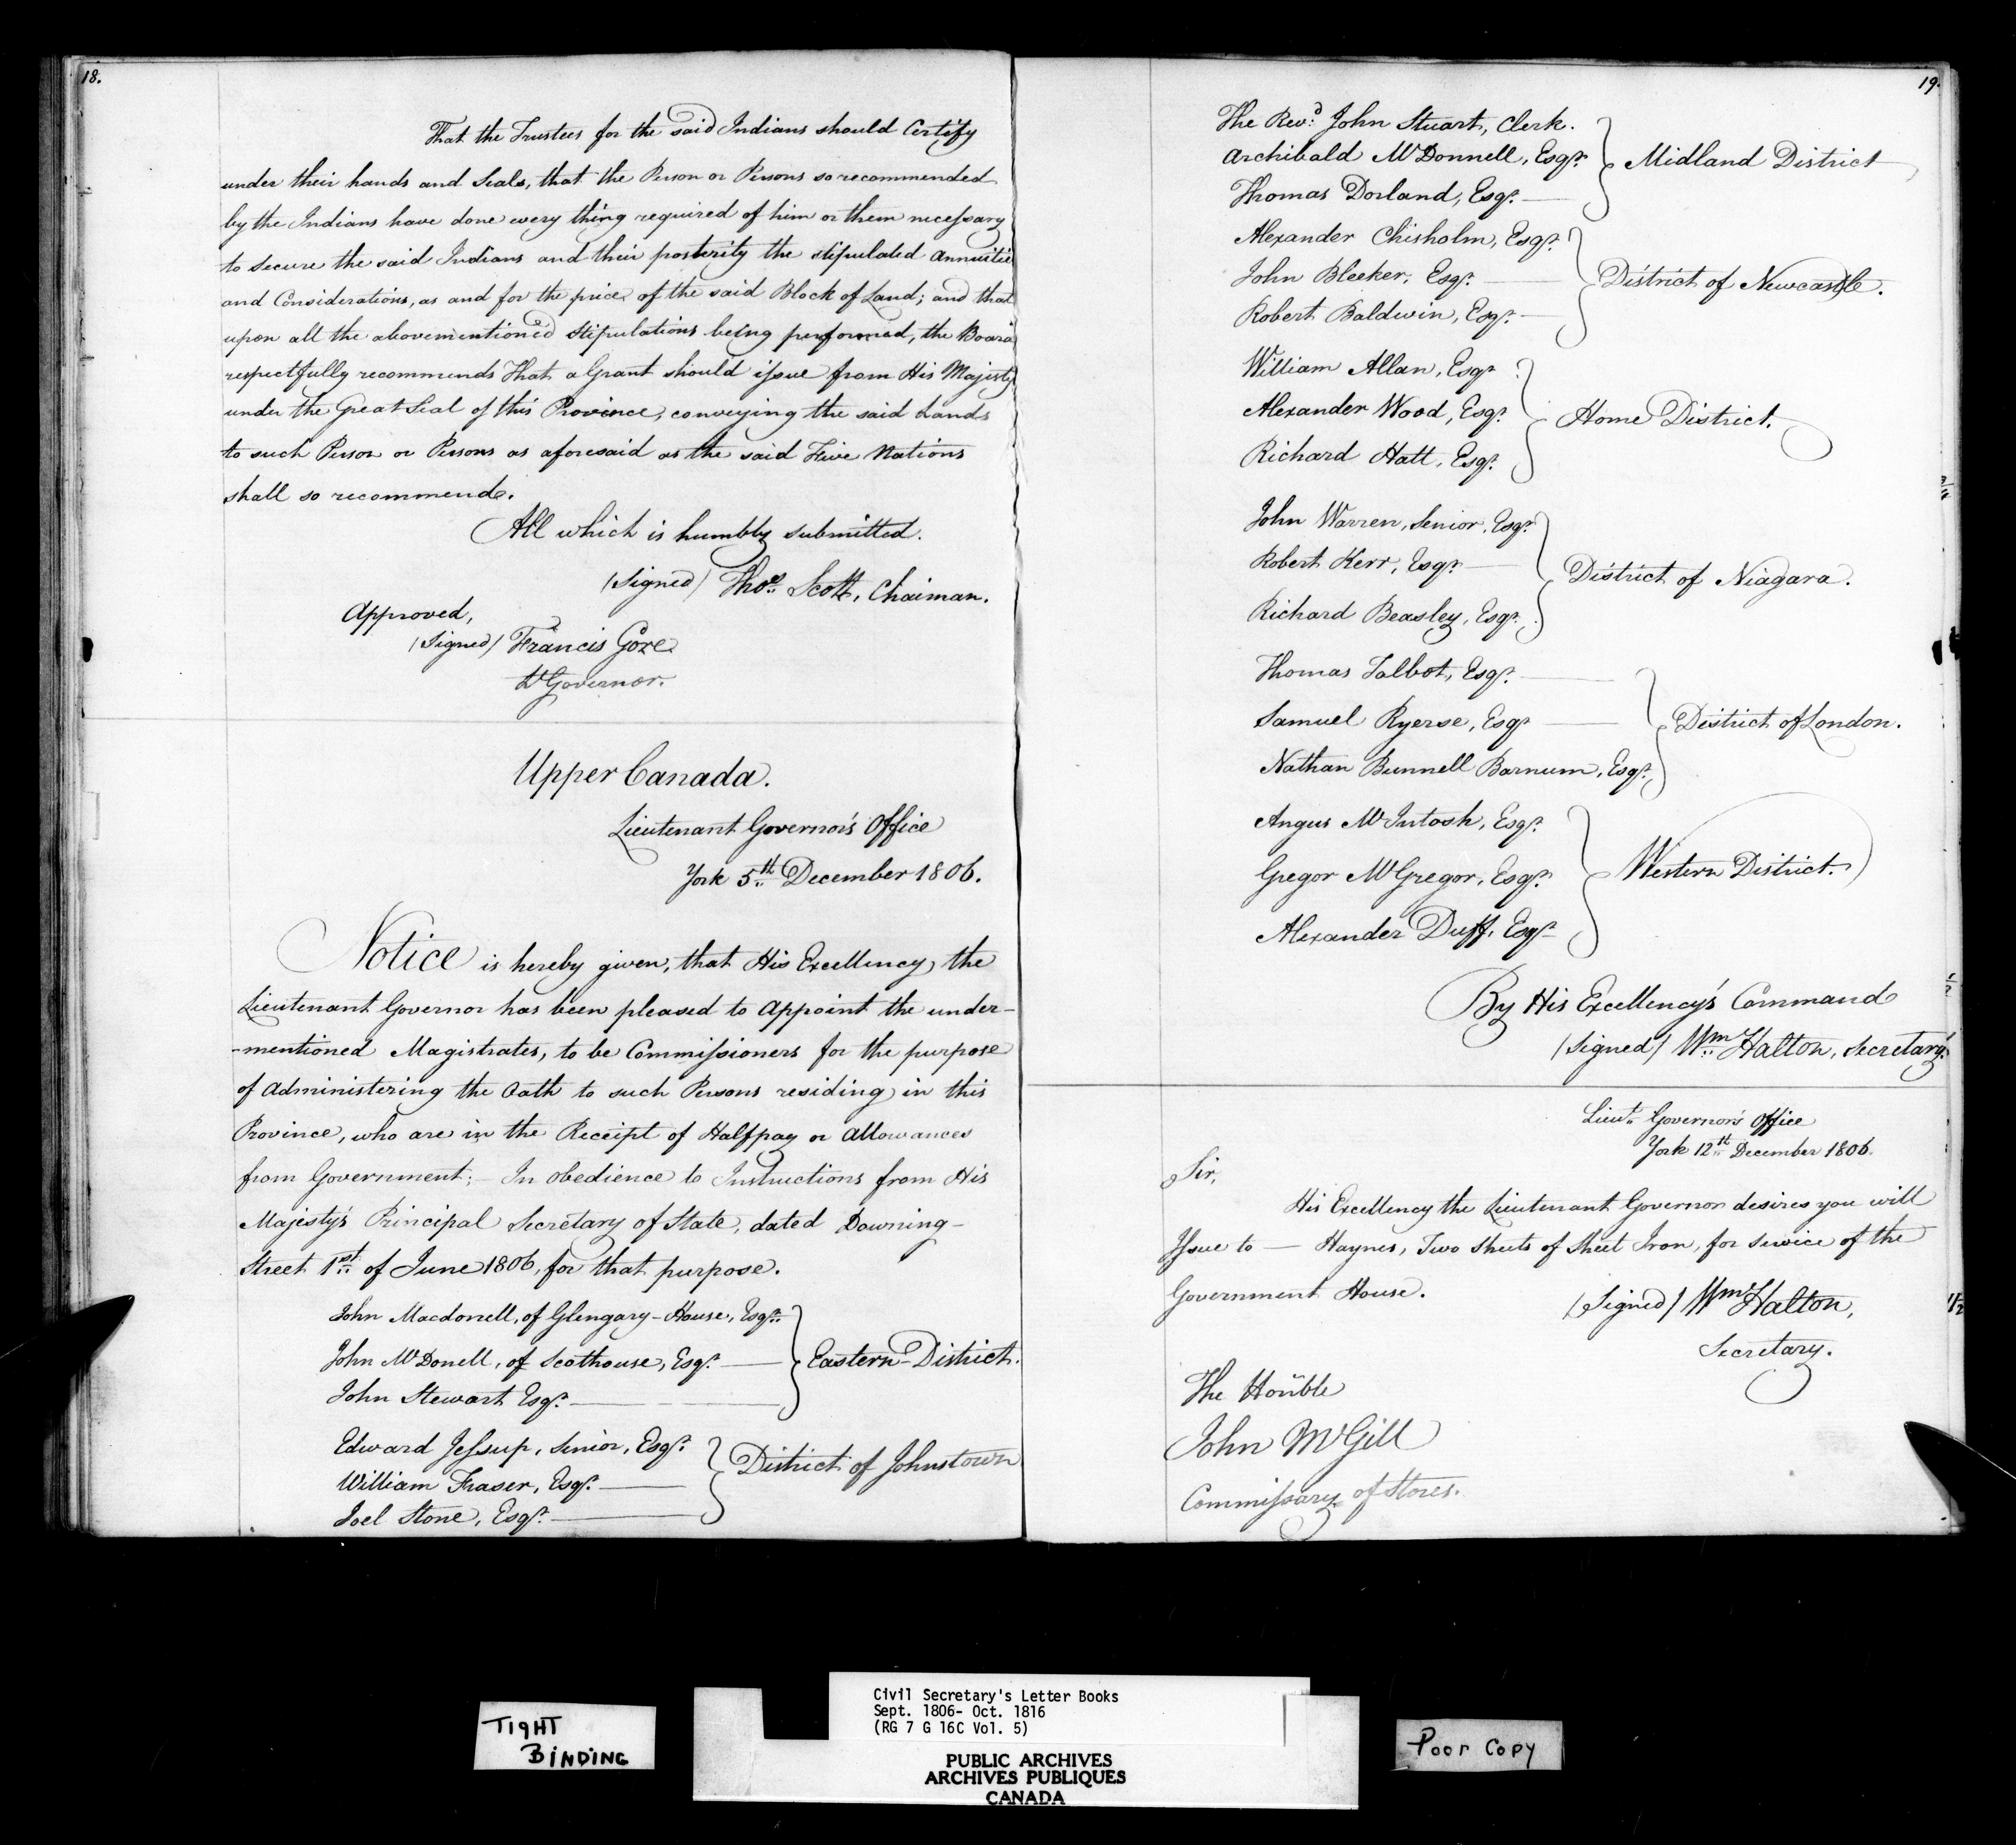 18.
That the Trustees for the said Indians should Certify
under their hands and Seals, that the Person or Persons so recommended
by the Indians have done every thing required of him or them necessary
to Secure the said Indians and their posterity the stipulated Annuitie
and Considerations, as and for the price of the said Block of Land; and that
upon all the abovementioned Stipulations being performed, the Board
respectfully recommends That a Grant should issue from His Majesty
under the Great Seal of this Province, conveying the said Lands
to such Person or Persons as aforesaid as the said Five Nations
shall so recommend.
All which is humbly submitted.
(Signed) Thos. Scott, Chaiman.
Approved,
(Signed) Francis Gore
Lt Governor.
Upper Canada.
Lieutenant Governor's Office
York 5th December 1806.
Notice is hereby given, that His Excellency, the
Lieutenant Governor has been pleased to Appoint the under-
-mentioned Magistrates, to be Commissioners for the purpose
of Administering the Oath to such Persons residing in this
Province, who are in the Receipt of Halfpay or Allowances
from Government; - In obedience to Instructions from His
Majesty's Principal Secretary of State, dated Downing-
Street 1st of June 1806, for that purpose.
John Macdonell, of Glengary-House, Esqr.
John McDonell, of Scothouse, Esqr. Eastern-District.
John Stewart Esqr.
Edward Jessup, Senior, Esqr.
William Fraser, Esqr. District of Johnstown
Joel Stone, Esqr.
19.
The Revd. John Stuart, Clerk.
Archibald McDonnell, Esqr. Midland District
Thomas Dorland, Esqr.
Alexander Chisholm, Esqr.
John Bleeker, Esqr. District of Newcastle.
Robert Baldwin, Esqr.
William Allan, Esqr
Alexander Wood, Esqr. Home District.
Richard Hatt, Esqr.
John Warren, Senior, Esqr.
Robert Kerr, Esqr. District of Niagara.
Richard Beasley, Esqr.
Thomas Talbot, Esqr.
Samuel Ryerse, Esqr District of London.
Nathan Bunnell Barnum, Esqr.
Angus McIntosh, Esqr.
Gregor McGregor, Esqr. Western District.
Alexander Duff, Esqr
By His Excellency's Command
(Signed) Wm Halton, Secretary.
Lieut. Governor's Office
York 12th December 1806.
Sir,
His Excellency the Lieutenant Governor desires you will
Issue to — Haynes, Two Sheets of Sheet Iron, for service of the
Government House.
(Signed) Wm Halton,
Secretary.
The Honble
John McGill
Commissary of Stores.
TIGHT
BINDING
Civil Secretary's Letter Books
Sept. 1806- Oct. 1816
(RG 7 G 16C Vol. 5)
PUBLIC ARCHIVES
ARCHIVES PUBLIQUES
CANADA
Poor Copy